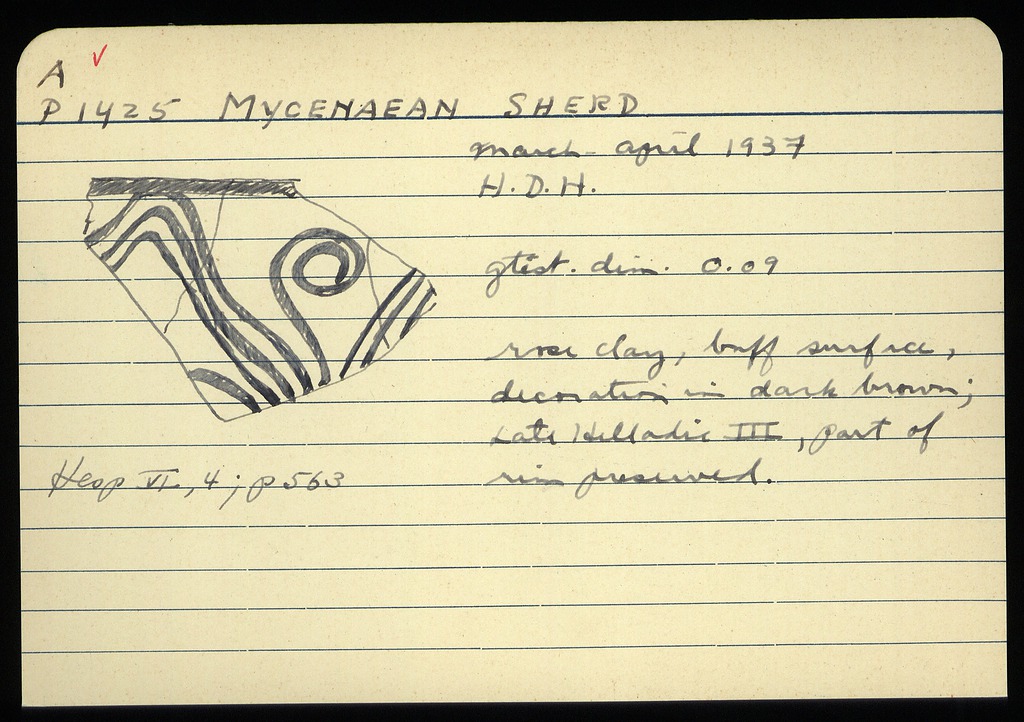 A
P 1425 MYCENAEAN SHERD
March - April 1937
H.D.H.
gtest. dim. 0.09
rose clay, buff surface,
decoration in dark brown;
Late Helladic III, part of
rim preserved.
Hesp VI, 4; p 563